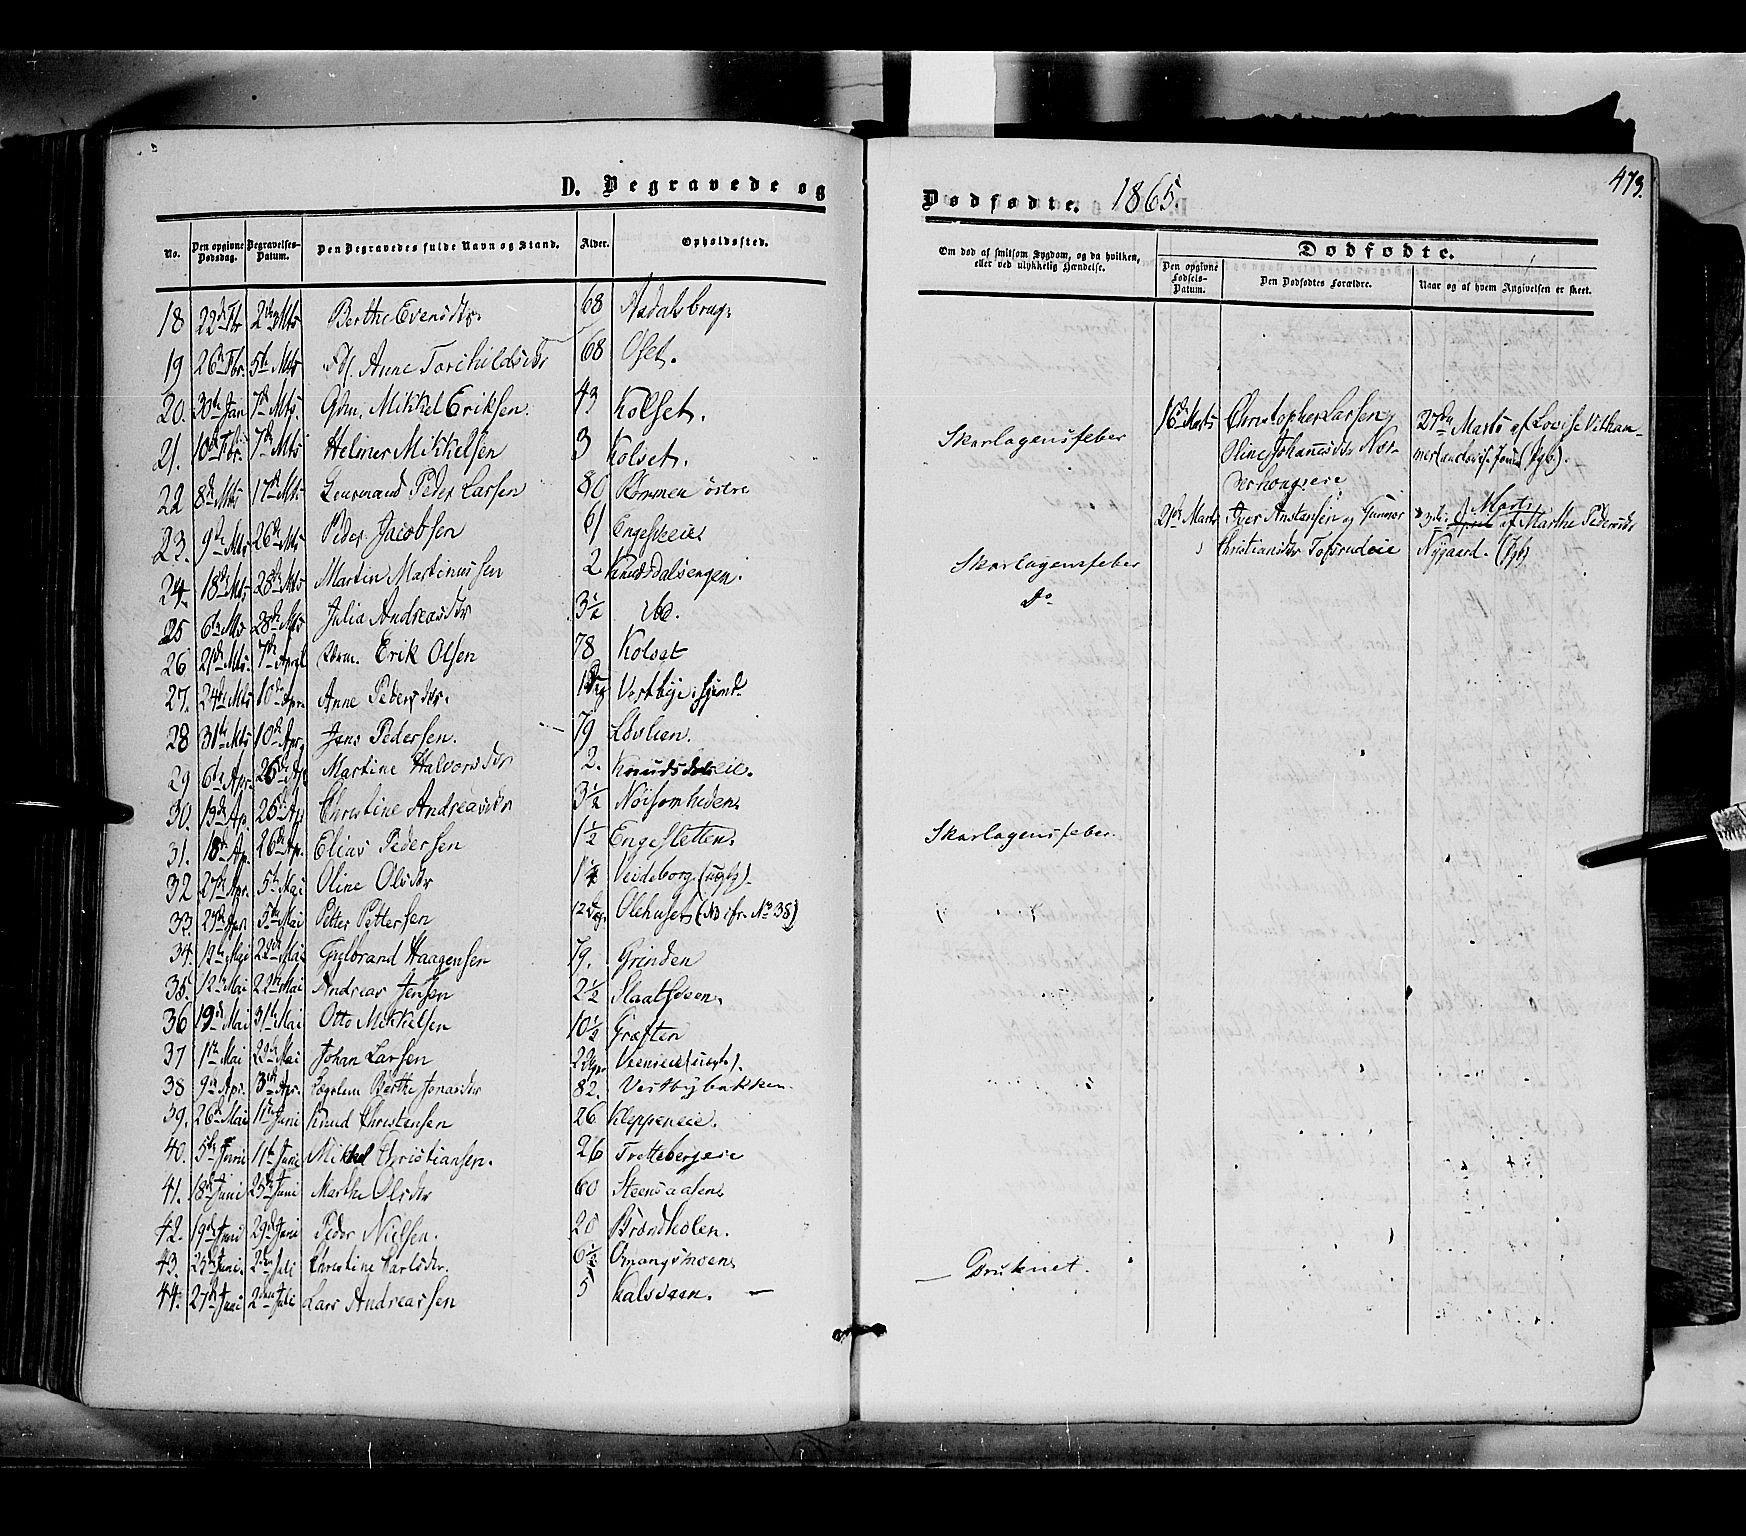 D. Begravede og
Dødfødte. 1865
473.
No. Den opgivne Dødsdag. Begravelses-Datum. Den Begravedes fulde Navn og Stand. Alder. Opholdssted.
Om død af smitsom Sygdom, og da hvilken, eller ved ulykkelig Hændelse.
Dødfødte.
Den opgivne Fødsels-Datum. Den Dødfødtes Forældre. Naar og af hvem Angivelsen er skeet.
18 22de Fbr 2den Mts Berthe Evensdtr. 68 Aadalsbrug
19 26de Fbr. 5te Mts Anne Torchildsdtr 68 Oset.
20. 30te Jan 7de Mts. Gdm. Mikkel Eriksen 43 Kolset.
21. 10de Fbr. 7de Mts Helmer Mikkelsen 3 Kolset. Skarlagensfeber
22 8de Mts 17de Mts Peder Larsen 80 Rømmen østre
23. 9de Mts 26de Mts Peder Jacobsen 61
24. 18de Mts 28de Mts Martin Martinussen 2 Knudsdalsengen. Skarlagensfeber
25 6te Mts 28de Mts Julia Andreasdtr 3½ ibd. Do
26 21de Mts. 7de April Erik Olsen 78 Kolset
27. 24de Mts 10de Apr. Anne Pedersdtr. 1 Dag
28 31te Mts 10de Apr. Jens Pedersen. 79 Løvlien.
29 6te Apr. 26de Ap. Martine Halvorsdtr 2. Knudsdalseie.
30. 13de Ap. 26de Ap Christine Andreasdtr 3½ Nøisomheden
31. 18de Ap. 26de Ap. Elias Pedersen 1½ Engesletten Skarlagensfeber.
32 27de Apr. 5te Mai Oline Olsdtr Veideborg (ugb).
33. 5te Mai Petter Pettersen 12 Dage Olehuset (No cfr. No 38)
34. 22de Mai Gulbrand Haagensen 79. Grinden
35. 12te Mai 22de Mai Andreas Jensen 2½
36 19de Mai 31te Mai Otto Mikkelsen 10½ Grøften
37 1ste Mai Johan Larsen
38 9de Apr. Apr. Berthe Jonasdtr 82. Vestbybakken.
39. 26de Mai 11te Juni Knud Christensen 26 Kleppeneie.
40. 5te Juni 11te Juni Mikkel Christiansen. 26 Trettebergeie
41. 18de Juni 25de Juni Marthe Olsdtr 60
42. 19de Juni 29de Juni Peder Nielsen. 20 Brændholen.
43. 25de Juni. 2den Juli Christine Karlsdtr. 6½ Omangsmoen — Druknet.
44. 27de Juni 2den Juli Lars Andreassen 5 Kalsveen. —
16de Marts Christopher Larsen og
Oline Johannesdtr
27de Marts af Lovise
21de Marts Iver Anstensen og Gunnor
Christiansdtr Tofsrudeie
Marts
af Marthe Pedersdtr
Nygaard. (Jgb)